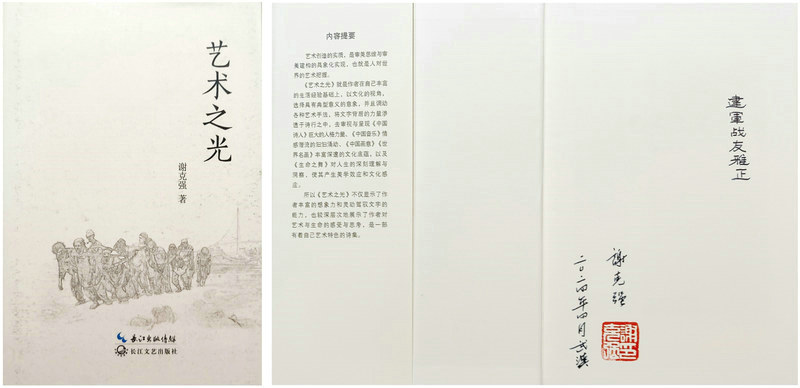 艺术之光
谢克强 著
长江出版传媒
长江文艺出版社
内容提要
艺术创造的实质，是审美思维与审
美建构的具象化实现，也就是人对世
界的艺术把握。
《艺术之光》就是作者在自己丰富
的生活经验基础上，以文化的视角，
选择具有典型意义的意象，并且调动
各种艺术手法，将文字背后的力量渗
透于诗行之中，去审视与呈现《中国
诗人》巨大的人格力量、《中国音乐》情
感潜流的汩汩涌动、《中国画意》《世
界名画》丰富深邃的文化底蕴，以及
《生命之教》对人生的深刻理解与
洞察，使其产生美学效应和文化感
应。
所以《艺术之光》不仅显示了作
者丰富的想象力和灵动驾驭文字的
能力，也较深层次地展示了作者对
艺术与生命的感受与思考，是一部
有着自己艺术特色的诗集。
建军战友雅正
谢克强
二〇二四年四月武汉